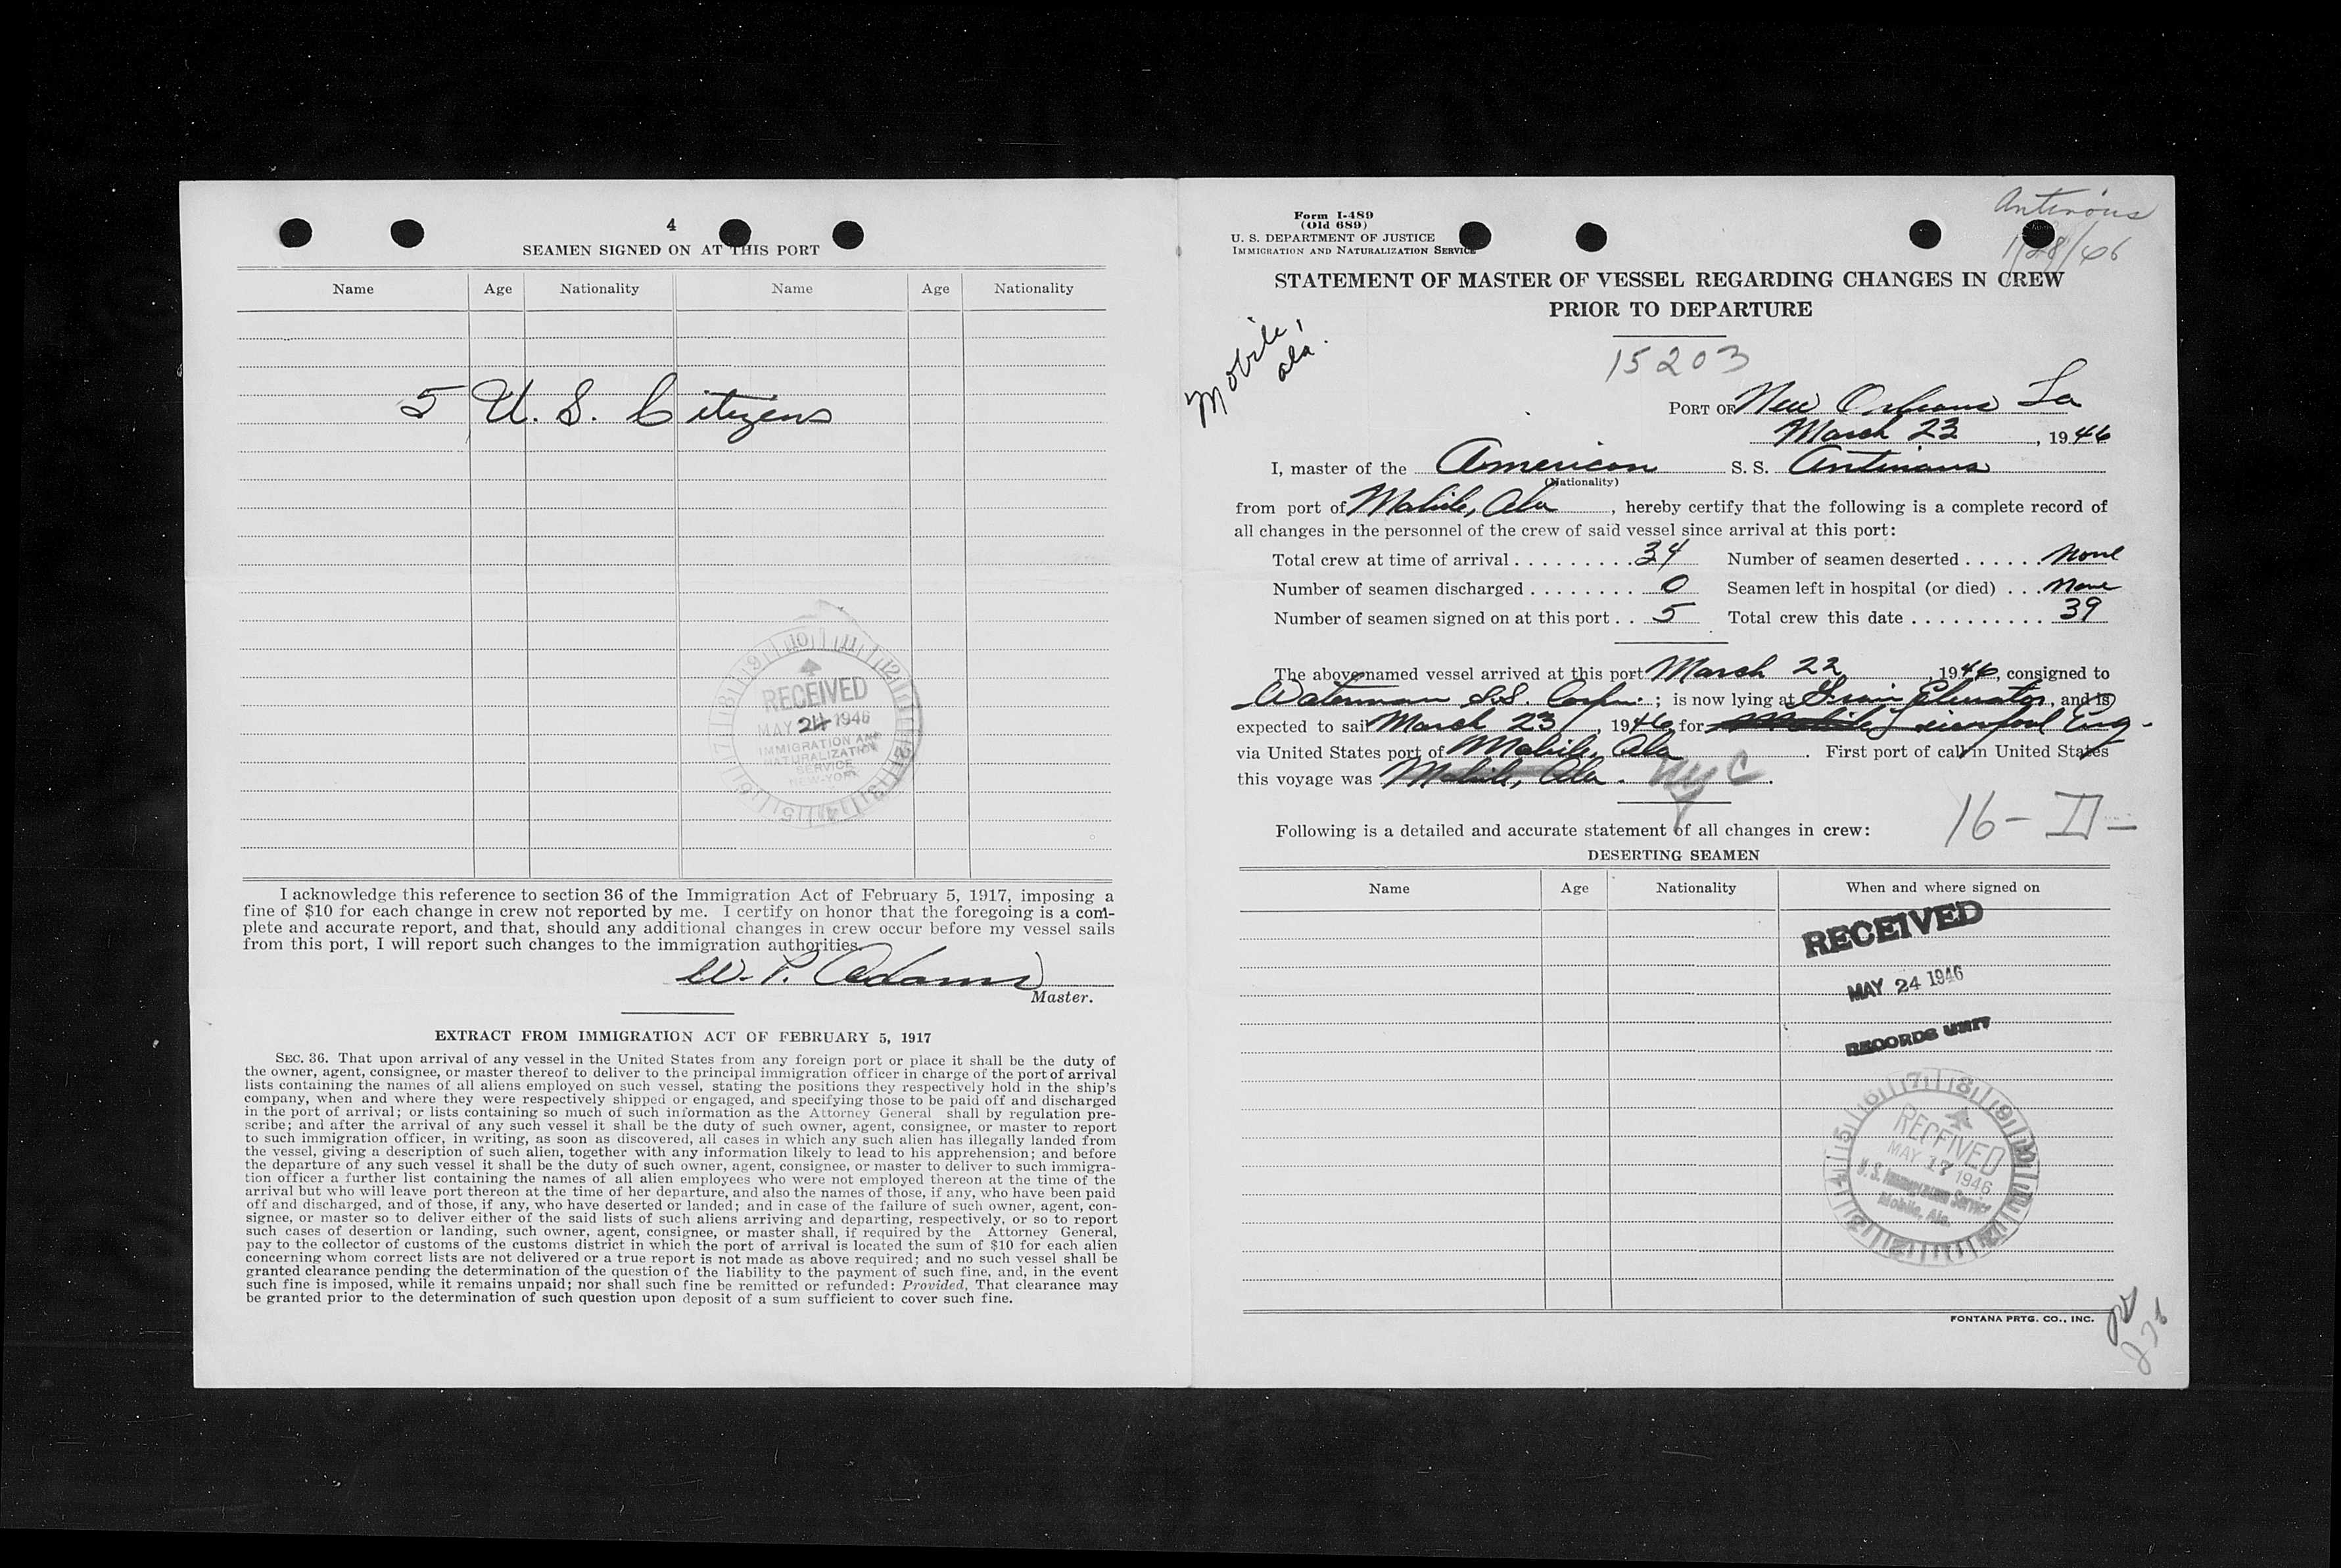 4
SEAMEN SIGNED ON AT THIS PORT
Name Age Nationality Name Age Nationality
5 U. S. Citizens
RECEIVED
MAY 24 1946
IMMIGRATION AND
NATURALIZATION
SERVICE
NEW-YORK
I acknowledge this reference to section 36 of the Immigration Act of February 5, 1917, imposing a
fine of $10 for each change in crew not reported by me. I certify on honor that the foregoing is a com-
plete and accurate report, and that, should any additional changes in crew occur before my vessel sails
from this port, I will report such changes to the immigration authorities.
W. P. Adams
Master.
EXTRACT FROM IMMIGRATION ACT OF FEBRUARY 5, 1917
SEC. 36. That upon arrival of any vessel in the United States from any foreign port or place it shall be the duty of
the owner, agent, consignee, or master thereof to deliver to the principal immigration officer in charge of the port of arrival
lists containing the names of all aliens employed on such vessel, stating the positions they respectively hold in the ship's
company, when and where they were respectively shipped or engaged, and specifying those to be paid off and discharged
in the port of arrival; or lists containing so much of such information as the Attorney General shall by regulation pre-
scribe; and after the arrival of any such vessel it shall be the duty of such owner, agent, consignee, or master to report
to such immigration officer, in writing, as soon as discovered, all cases in which any such alien has illegally landed from
the vessel, giving a description of such alien, together with any information likely to lead to his apprehension; and before
the departure of any such vessel it shall be the duty of such owner, agent, consignee, or master to deliver to such immigra-
tion officer a further list containing the names of all alien employees who were not employed thereon at the time of the
arrival but who will leave port thereon at the time of her departure, and also the names of those, if any, who have been paid
off and discharged, and of those, if any, who have deserted or landed; and in case of the failure of such owner, agent, con-
signee, or master so to deliver either of the said lists of such aliens arriving and departing, respectively, or so to report
such cases of desertion or landing, such owner, agent, consignee, or master shall, if required by the Attorney General,
pay to the collector of customs of the customs district in which the port of arrival is located the sum of $10 for each alien
concerning whom correct lists are not delivered or a true report is not made as above required; and no such vessel shall be
granted clearance pending the determination of the question of the liability to the payment of such fine, and, in the event
such fine is imposed, while it remains unpaid; nor shall such fine be remitted or refunded: Provided, That clearance may
be granted prior to the determination of such question upon deposit of a sum sufficient to cover such fine.
Antinous
1/28/46
Form I-489
(Old 689)
U. S. DEPARTMENT OF JUSTICE
IMMIGRATION AND NATURALIZATION SERVICE
STATEMENT OF MASTER OF VESSEL REGARDING CHANGES IN CREW
PRIOR TO DEPARTURE
Mobile,
ala.
15203
PORT OF New Orleans La
March 23, 1946
I, master of the American S. S. Antinous
(Nationality)
from port of Mobile, Ala, hereby certify that the following is a complete record of
all changes in the personnel of the crew of said vessel since arrival at this port:
Total crew at time of arrival 34 Number of seamen deserted None
Number of seamen discharged 0 Seamen left in hospital (or died) None
Number of seamen signed on at this port 5 Total crew this date 39
The above-named vessel arrived at this port March 22, 1946, consigned to
Waterman S.S. Corpn.; is now lying at Grain Elevator, and is
expected to sail March 23, 1946, for Mobile Liverpool Eng.
via United States port of Mobile, Ala. First port of call in United States
this voyage was Mobile, Ala. NYC
Following is a detailed and accurate statement of all changes in crew:
16-II-
DESERTING SEAMEN
Name Age Nationality When and where signed on
RECEIVED
MAY 24 1946
RECORDS UNIT
RECEIVED
MAY 17 1946
U.S. Immigration Service
Mobile, Ala.
FONTANA PRTG. CO., INC.